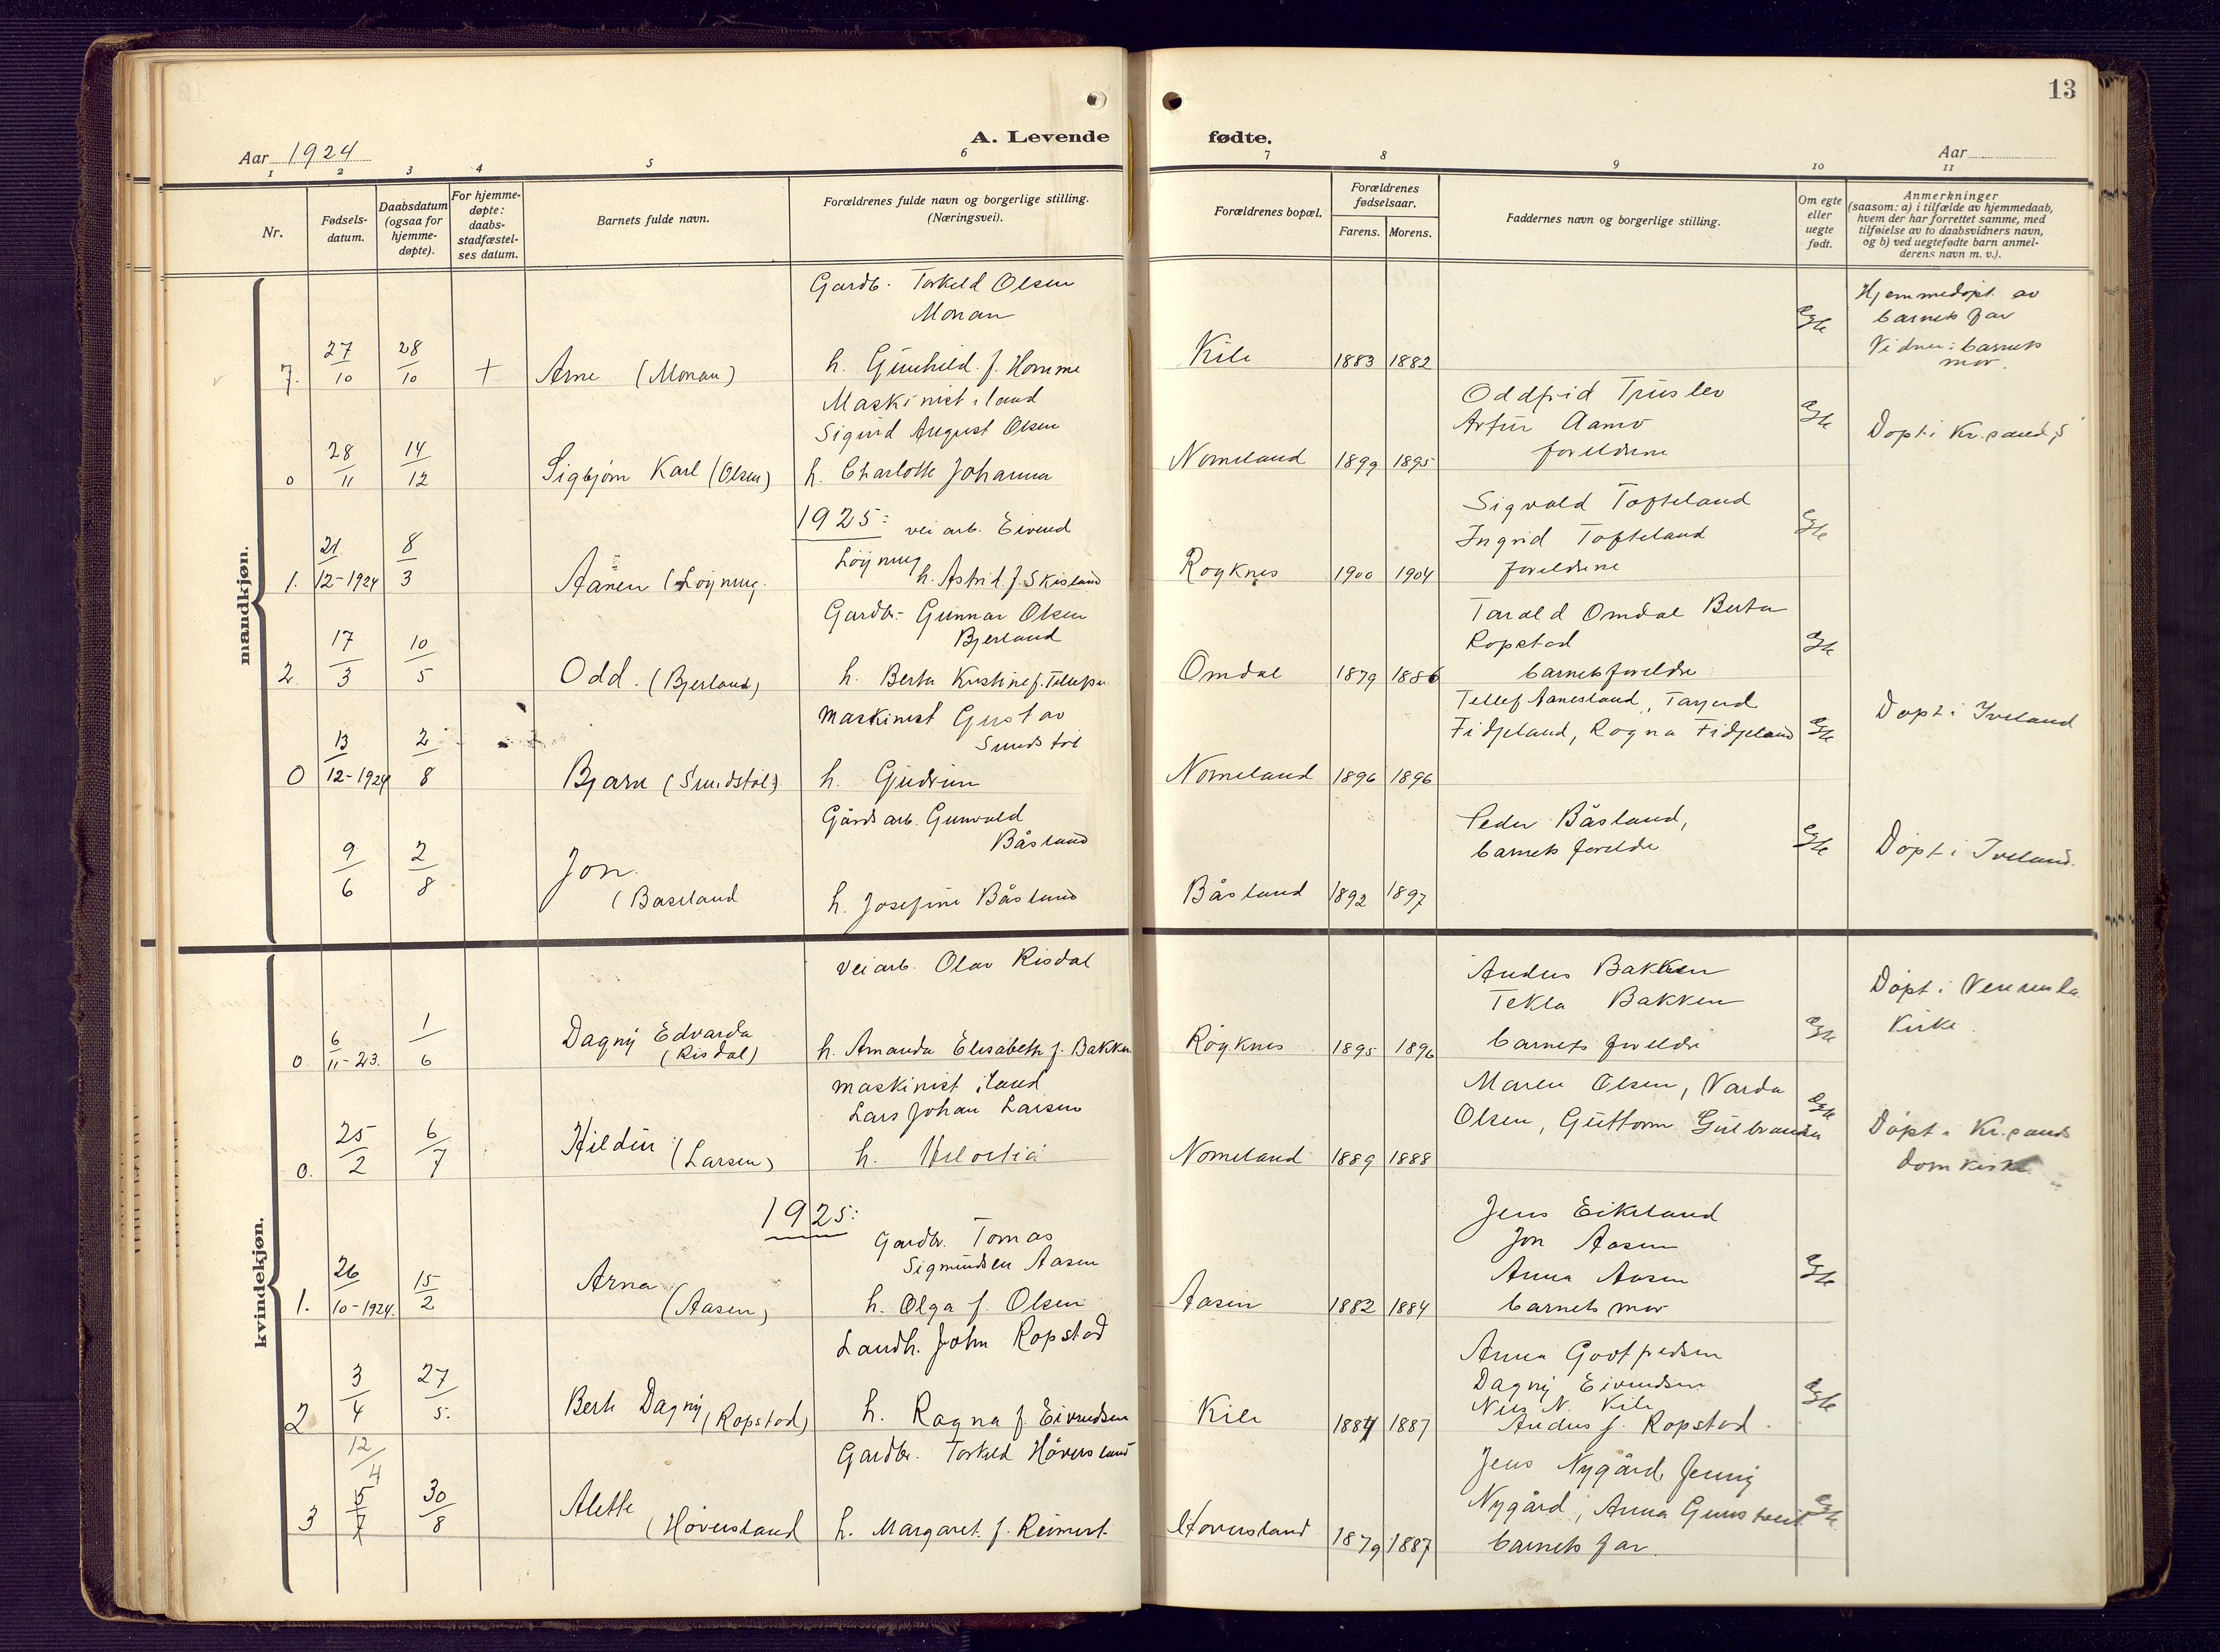 13
A. Levende
fødte.
Aar 1924
Aar
1 2 3 4 5 6
7 8 9 10 11
Nr.
Fødsels-
datum.
Daabsdatum
(ogsaa for
hjemme-
døpte).
For hjemme-
døpte:
daabs-
stadfæstel-
ses datum.
Barnets fulde navn.
Forældrenes fulde navn og borgerlige stilling.
(Næringsvei).
Forældrenes bopæl.
Forældrenes
fødselsaar.
Farens. Morens.
Faddernes navn og borgerlige stilling.
Om egte
eller
uegte
født.
Anmerkninger
(saasom: a) i tilfælde av hjemmedaab,
hvem der har forrettet samme, med
tilføielse av to daabsvidners navn,
og b) ved uegtefødte barn anmel-
derens navn m. v.).
mandkjøn.
Gardb. Torkeld Olsen
Monan
7. 27/10 28/10 + Arne (Monan) h. Gunhild f. Homme
Kile 1883 1882
egte
Hjemmedøpt av
barnets far
Vidner: barnets
mor.
Maskinist i land
Sigurd August Olsen
0 28/11 14/12 Sigbjørn Karl (Olsen) h. Charlotte Johanna
Nomeland 1899 1895
Oddfrid
Artur Aamo
foreldrene
egte
Døpt i Kr.sand S
1925:
vei arb. Eivind
Løyning
1. 21/12-1924 8/3 Aanen (Løyning. h. Astrid f. Skisland
Røyknes 1900 1904
Sigvald Tofteland
Ingrid Tofteland
foreldrene
egte
Gardbr. Gunnar Olsen
Bjerland
2. 17/3 10/5 Odd. (Bjerland) h. Berta Kristine f.
Omdal 1879 1886
Tarald Omdal Berta
Ropstad
barnets foreldre
egte
Maskinist Gustav
Sundstøl
0 13/12-1924 2/8 Bjarne (Sundstøl) h. Gudrun
Nomeland 1896 1896
Tellef Aanesland, Tarjerd
Fidjeland, Ragna Fidjeland
egte
Døpt i Iveland
Gårdsarb. Gunvald
Båsland
9/6 2/8 Jon.
(Baseland h. Josefine Båsland
Båsland 1892 1897
Peder Båsland,
barnets foreldre
egte
Døpt i Iveland.
kvindekjøn.
Veiarb. Olav Risdal
0. 6/11-23. 1/6 Dagny Edvarda
(Risdal) h. Amanda Elisabeth f. Bakken
Røyknes 1895 1896
Anders Bakken
Tekla Bakken
barnets foreldre
egte
Døpt i Vennesla
Kirke
Maskinist i land
Lars Johan Larsen
0. 25/2 6/7 Hildur (Larsen) h.
Nomeland 1889 1888
Maren Olsen, Varda
Olsen, Guttorm Gulbrandsen
egte
Døpt i Kr.sands
domkirke
1925:
Gardbr. Tomas
Sigmundsen Aasen
1. 26/10-1924. 15/2 Arna
(Aasen) h. Olga f. Olsen
Aasen 1882 1884
Jens Eikeland
Jon Aasen
Anna Aasen
barnets mor
egte
Landh. John Ropstad
2 3/4 27/5. Berte Dagny (Ropstad) h. Ragna f. Eivindsen
Kile 1884 1887
Anna Godtfredsen
Dagny Eivindsen
Nils N. Kile
Anders J. Ropstad.
egte
Gardbr. Torkeld Høversland
12/4
3 5/7 30/8 Alette
(Høversland h. Margaret f. Reinert.
Høversland 1879 1887
Jens Nygård, Jenny
Nygård, Anna
barnets far.
egte